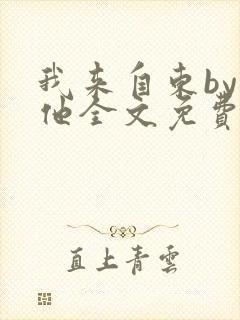 我来自东by
他全文免費
直上青雲